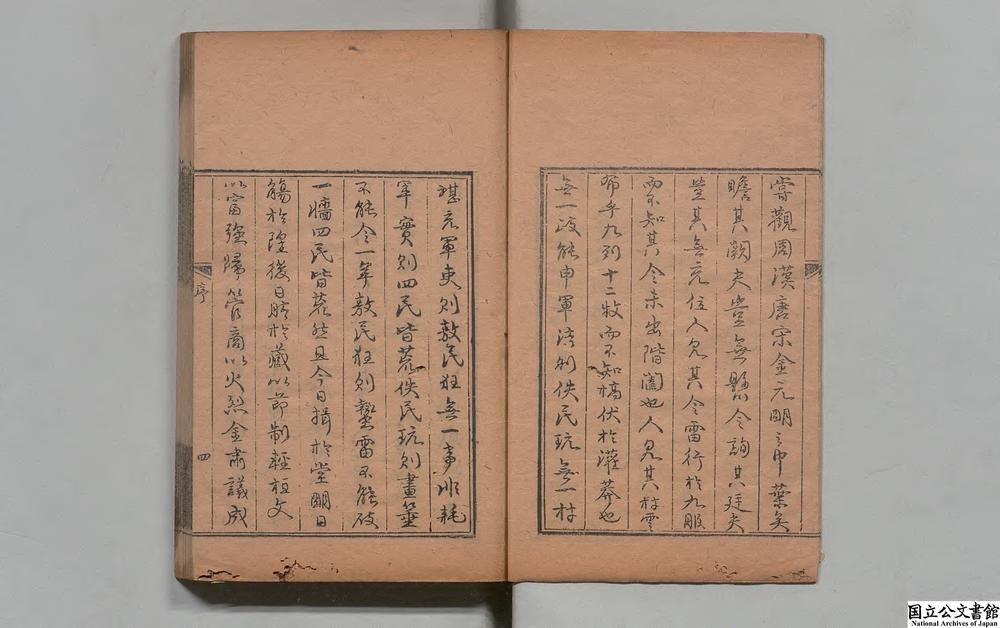 嘗觀周漢唐宋金元明之市藥矣
瞻其闕夫豈無懸令詢其廷夫
豈其無充位人見其令雷行於九服
而不知其令未出階闥也人見其材雲
布乎九列十二牧而不知槁伏於灌莽也
無一政能申軍法則佚民玩無一材
堪充軍吏則敖民狂無一事非耗
軍實則四民皆荒佚民玩則畫箠
不能令一羊敖民狂則蟄雷不能破
一牆四民皆荒然且今日揖於堂明日
觴於隍後日胙於藏以節制輕桓文
以富強歸管商以火烈金肅議成
序
四
国立公文書館
National Archives of Japan